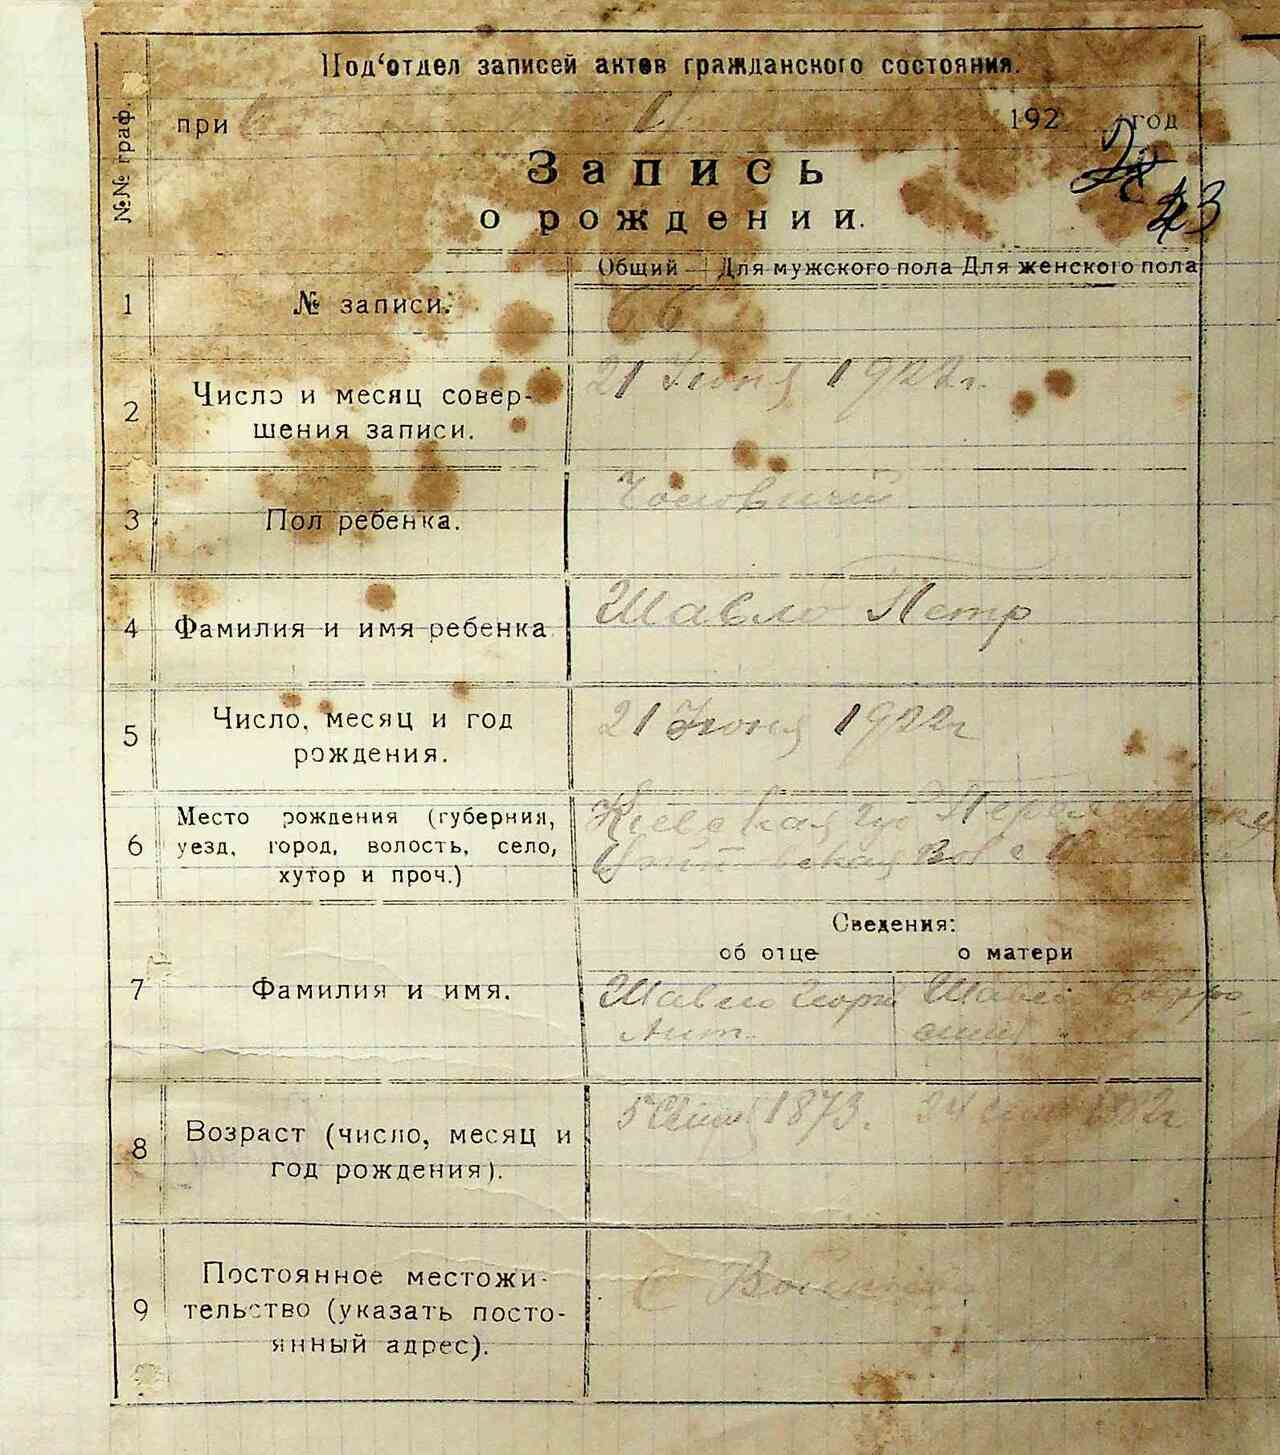 Под‘отдел записей актов гражданского состояния.
№№ граф.
при 192 год
Запись
о рождении.
43
Общий Для мужского пола Для женского пола
1 № записи. 66
2 Число и месяц совер-
шения записи.
21 Июня 1922 г.
3 Пол ребенка.
4 Фамилия и имя ребенка Шавло Петр
5 Число, месяц и год
рождения.
21 Июня 1922 г
6 Место рождения (губерния,
уезд, город, волость, село,
хутор и проч.)
Киевская губ
вол с
Сведения:
об отце о матери
7 Фамилия и имя.
Шавло Шавло
8 Возраст (число, месяц и
год рождения).
5 1873. 24 1882 г
9 Постоянное местожи-
тельство (указать посто-
янный адрес).
С